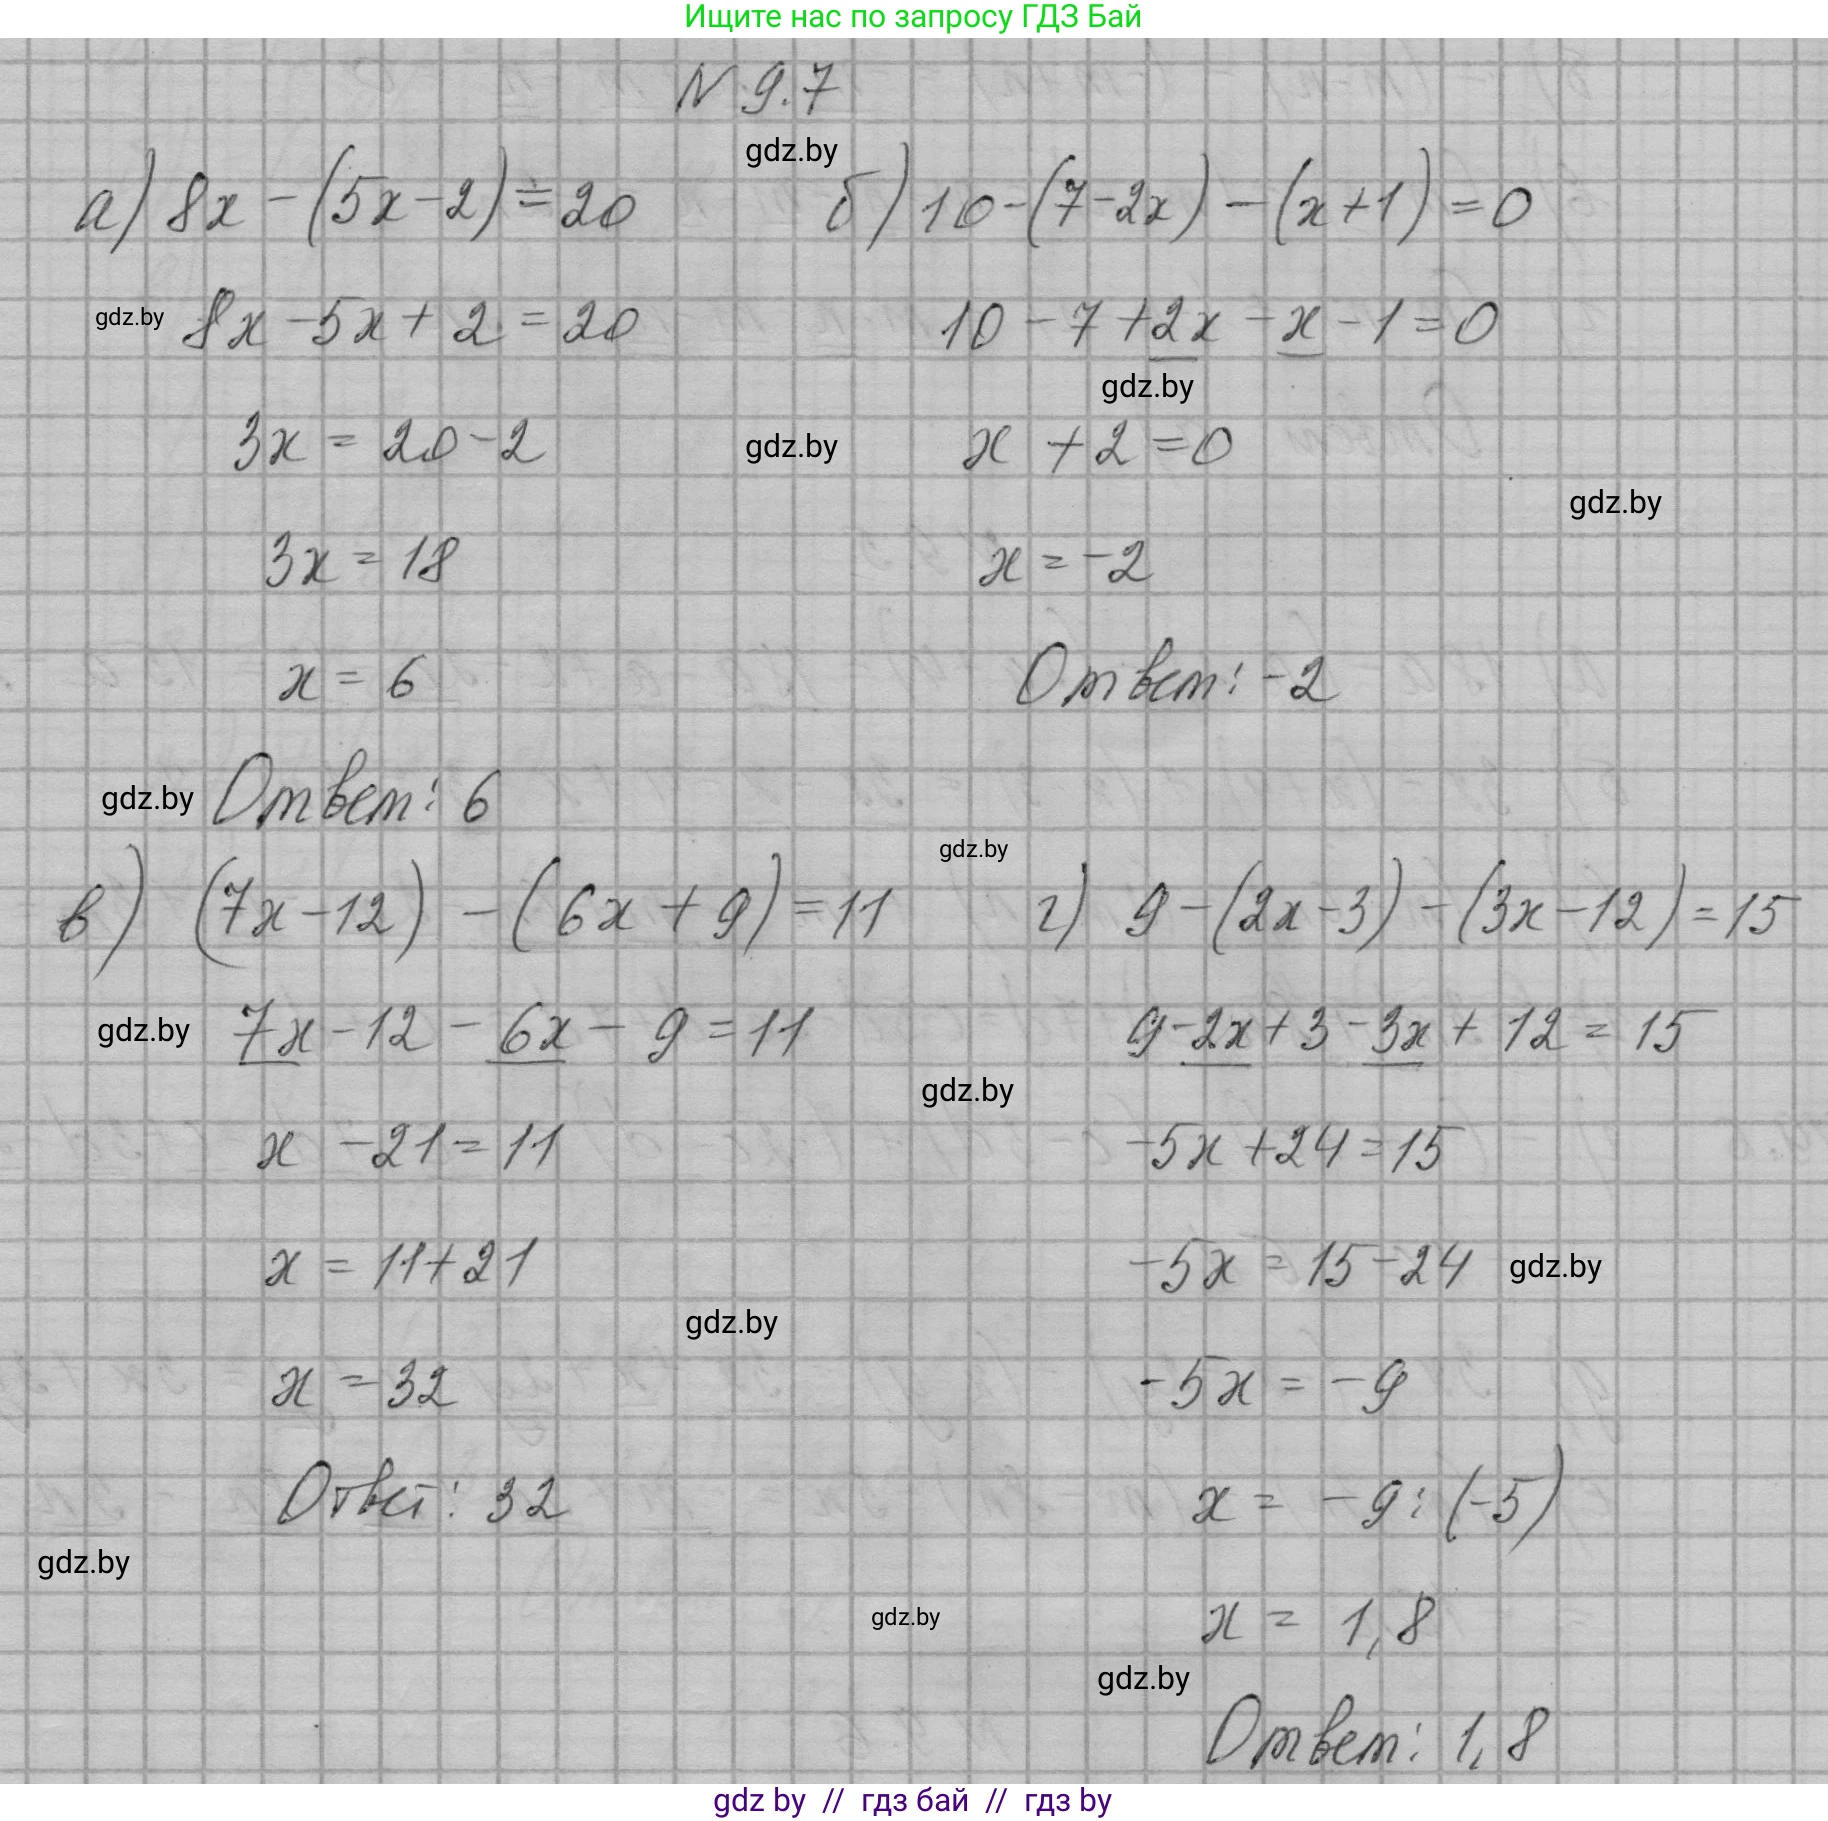 Ищите нас по запросу ГДЗ Бай
N 9.7
gdz.by
а) 8x - (5x - 2) = 20
gdz.by 8x - 5x + 2 = 20
3x = 20 - 2
3x = 18
x = 6
gdz.by Ответ: 6
б) 10 - (7 - 2x) - (x + 1) = 0
10 - 7 + 2x - x - 1 = 0
gdz.by
gdz.by x + 2 = 0
gdz.by
x = -2
Ответ: -2
gdz.by
в) (7x - 12) - (6x + 9) = 11
gdz.by 7x - 12 - 6x - 9 = 11
gdz.by
x - 21 = 11
x = 11 + 21
gdz.by
x = 32
Ответ: 32
gdz.by
г) 9 - (2x - 3) - (3x - 12) = 15
9 - 2x + 3 - 3x + 12 = 15
-5x + 24 = 15
-5x = 15 - 24 gdz.by
-5x = -9
x = -9 : (-5)
gdz.by
x = 1,8
gdz.by
Ответ: 1,8
gdz by // гдз бай // гдз by